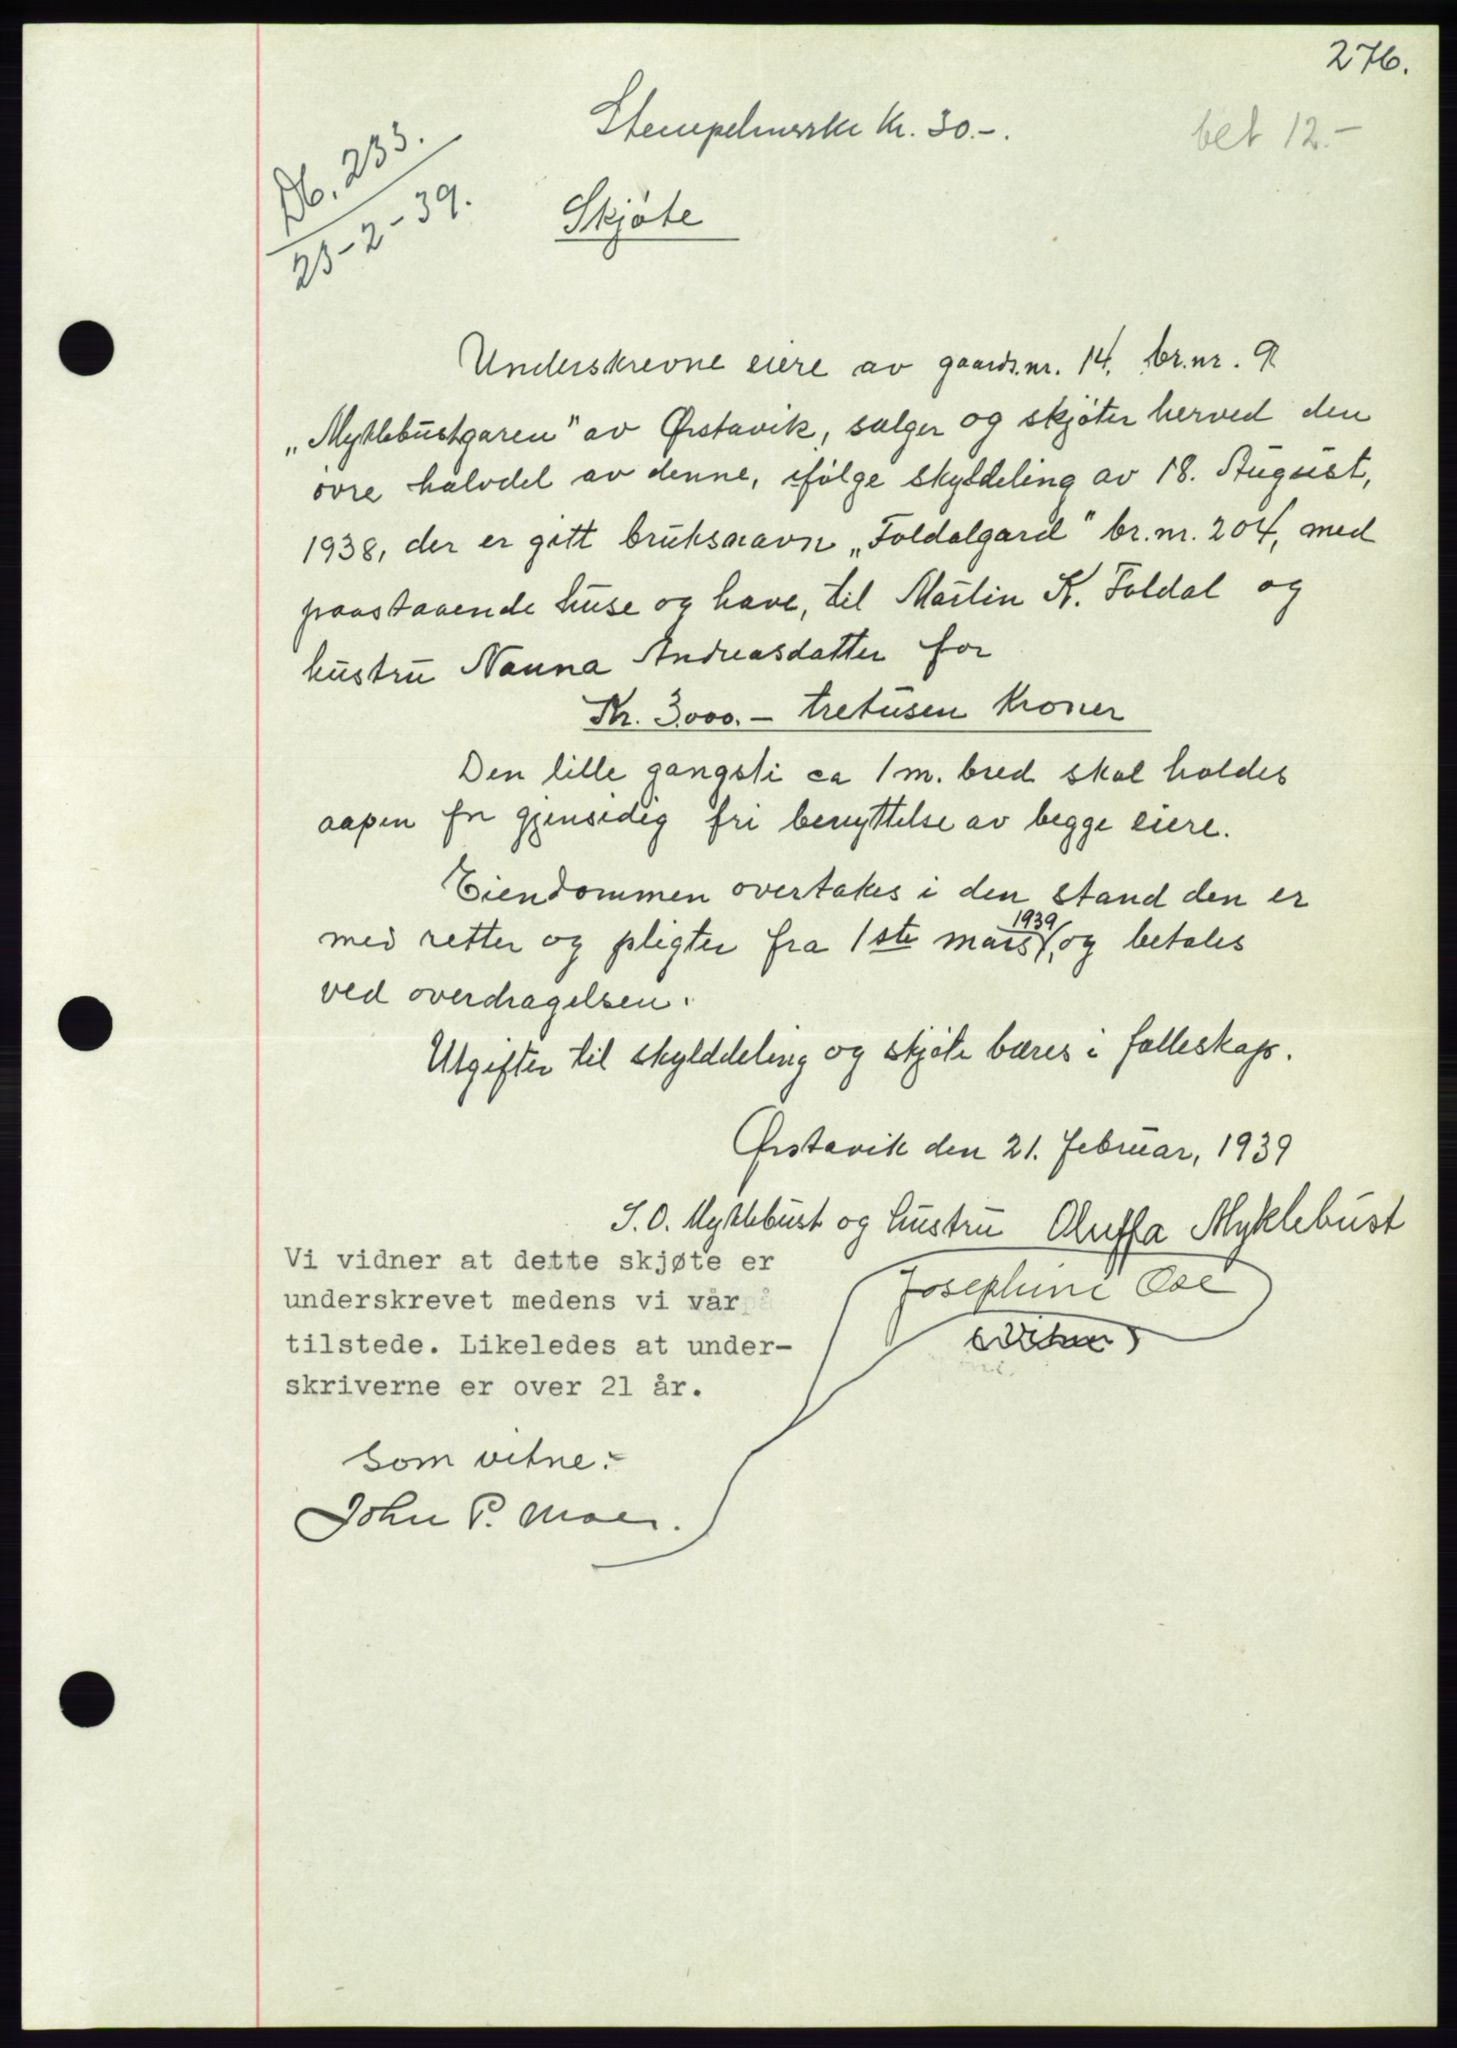 276.
Stempelmerke Kr. 30.-.
bet 12.-
Db. 233.
23-2-39.
Skjøte
Underskrevne eiere av gaards.nr. 14, br.nr. 9
„Myklebustgaren" av Ørstavik, sælger og skjøter herved den
øvre halvdel av denne, ifølge skylddeling av 18. August,
1938, der er gitt bruksnavn „Foldalgard" br.nr. 204, med
paastaaende huse og have, til Martin K. Foldal og
hustru Nanna Andreasdatter for
Kr. 3.000.- tretusen Kroner
Den lille gangsti ca 1 m. bred skal holdes
aapen for gjensidig fri benyttelse av begge eiere.
Eiendommen overtakes i den stand den er
1939
med retter og pligter fra 1ste mars, og betales
ved overdragelsen.
Utgifter til skylddeling og skjøte bæres i fælleskap.
Ørstavik den 21. februar, 1939
S. O. Myklebust og hustru Oluffa Myklebust
Vi vidner at dette skjøte er
underskrevet medens vi vår
tilstede. Likeledes at under-
skriverne er over 21 år.
Josephine Ose
som vitne:-
John P. Moen.